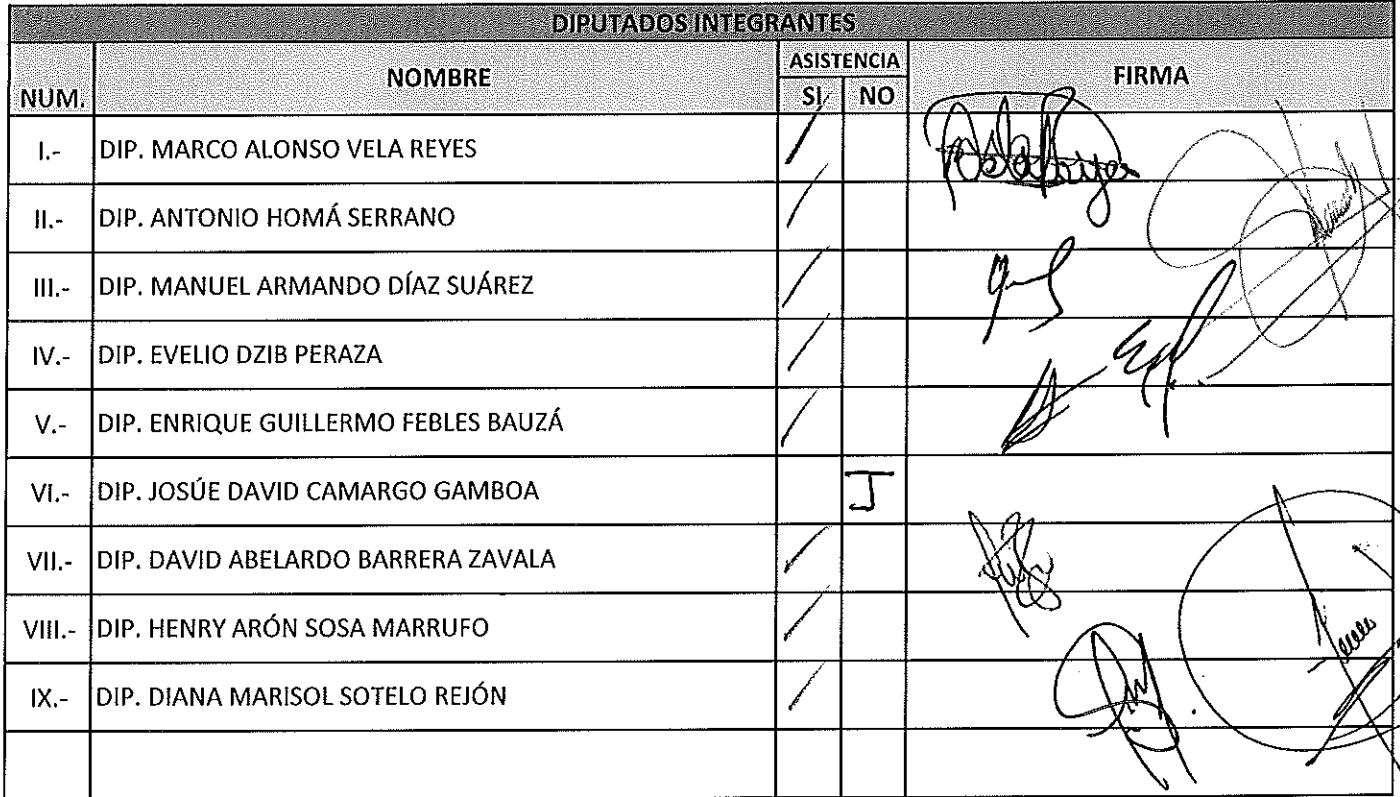 DIPUTADOS INTEGRANTES
NUM. NOMBRE ASISTENCIA FIRMA
SI NO
I.- DIP. MARCO ALONSO VELA REYES /
II.- DIP. ANTONIO HOMÁ SERRANO /
III.- DIP. MANUEL ARMANDO DÍAZ SUÁREZ /
IV.- DIP. EVELIO DZIB PERAZA /
V.- DIP. ENRIQUE GUILLERMO FEBLES BAUZÁ /
VI.- DIP. JOSÚE DAVID CAMARGO GAMBOA J
VII.- DIP. DAVID ABELARDO BARRERA ZAVALA /
VIII.- DIP. HENRY ARÓN SOSA MARRUFO /
IX.- DIP. DIANA MARISOL SOTELO REJÓN /